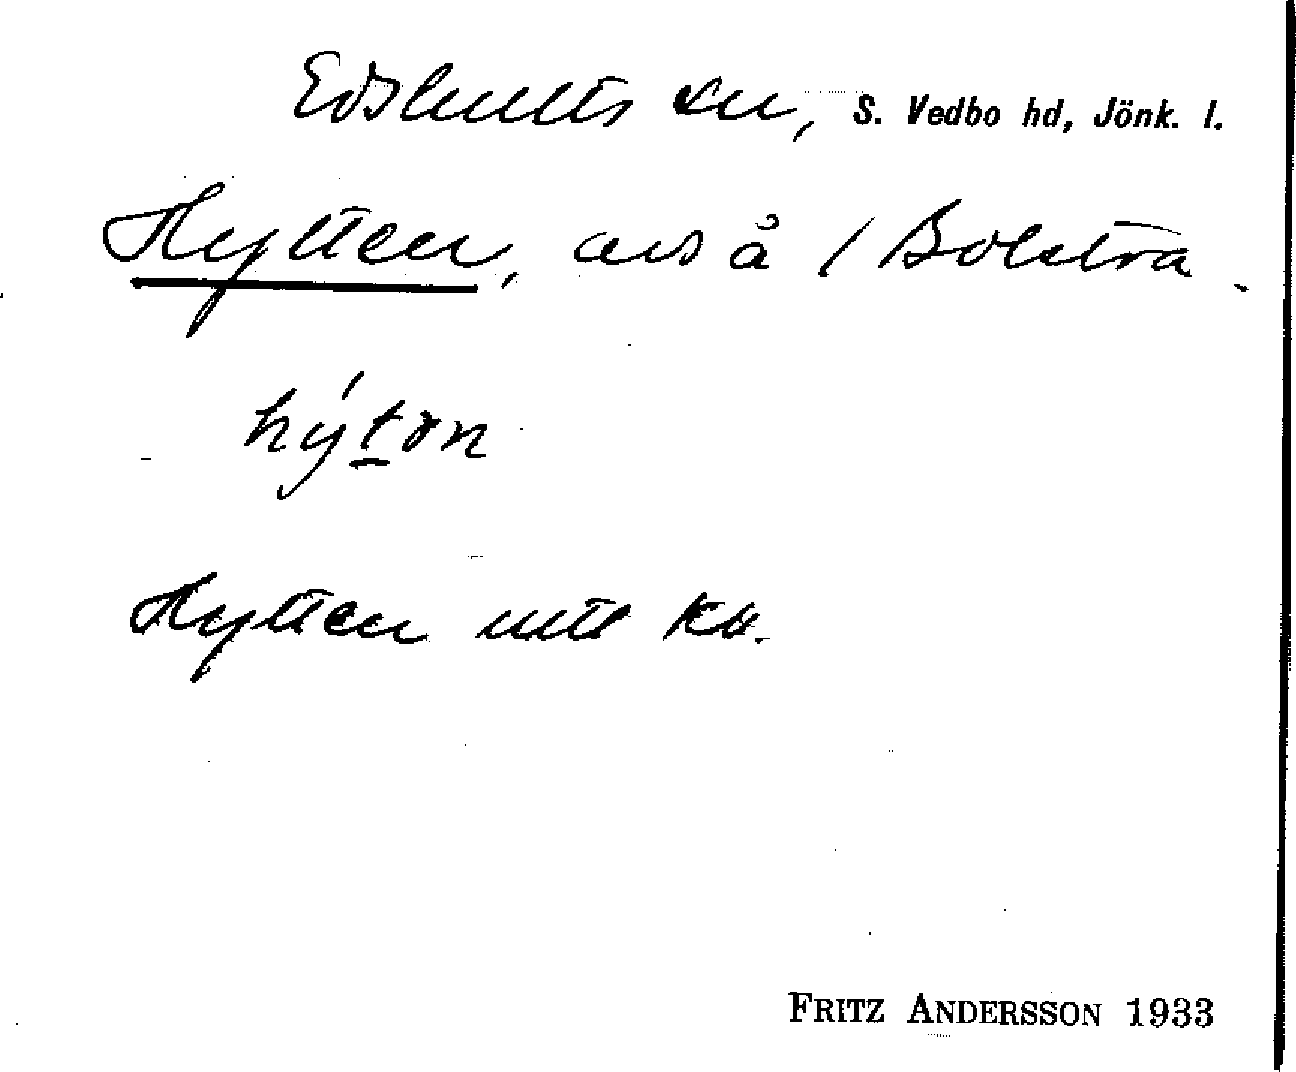 Edshults sn, S. Vedbo hd, Jönk. l.
Hytten, avs å 1 Bolstra.
hýtən
Hytten mtl kr.
FRITZ ANDERSSON 1933